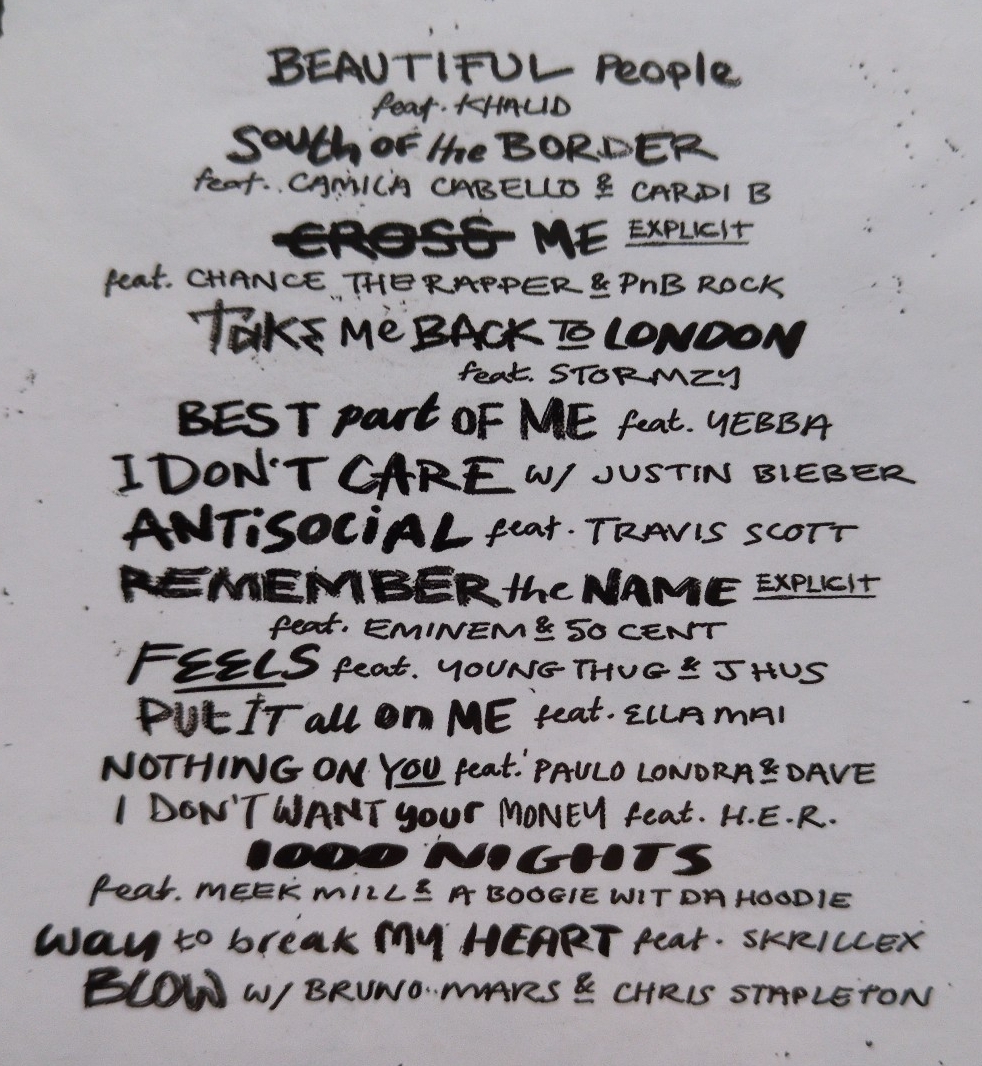 BEAUTIFUL People
feat. KHALID
South OF the BORDER
feat. CAMILA CABELLO & CARDI B
CROSS ME EXPLICIT
feat. CHANCE THE RAPPER & PnB ROCK
TAKE Me BACK TO LONDON
feat. STORMZY
BEST part OF ME feat. YEBBA
I DON'T CARE w/ JUSTIN BIEBER
ANTiSOCiAL feat. TRAVIS SCOTT
REMEMBER the NAME EXPLICIT
feat. EMINEM & 50 CENT
FEELS feat. YOUNG THUG & J HUS
PUt IT all on ME feat. ELLA MAI
NOTHING ON YOU feat. PAULO LONDRA & DAVE
I DON'T WANT your MONEY feat. H.E.R.
1000 NIGHTS
feat. MEEK MILL & A BOOGIE WIT DA HOODIE
way to break MY HEART feat. SKRILLEX
BLOW w/ BRUNO MARS & CHRIS STAPLETON